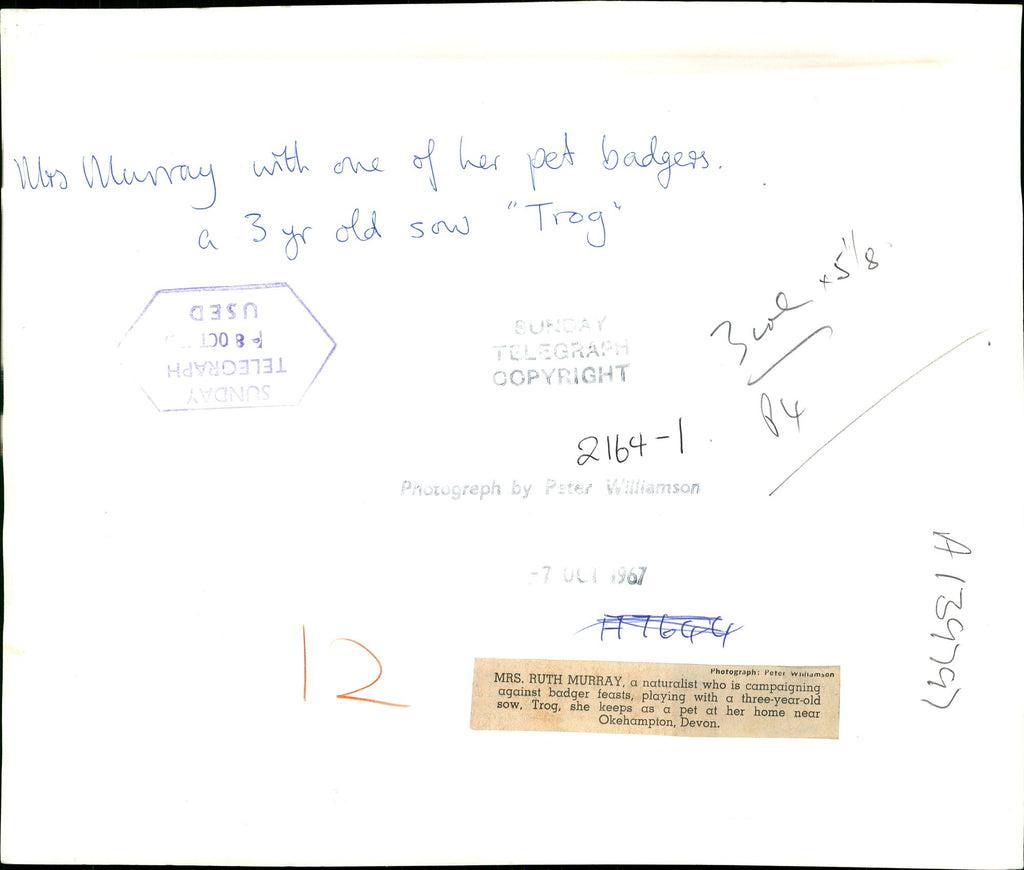 Mrs Murray with one of her pet badgers.
a 3 yr old sow "Trog"
SUNDAY
TELEGRAPH
-8 OCT
USED
SUNDAY
TELEGRAPH
COPYRIGHT
3 col x 5 1/8
P4
2164-1
Photograph by Peter Williamson
-7 OCT 1967
12
Photograph: Peter Williamson
MRS. RUTH MURRAY, a naturalist who is campaigning
against badger feasts, playing with a three-year-old
sow, Trog, she keeps as a pet at her home near
Okehampton, Devon.